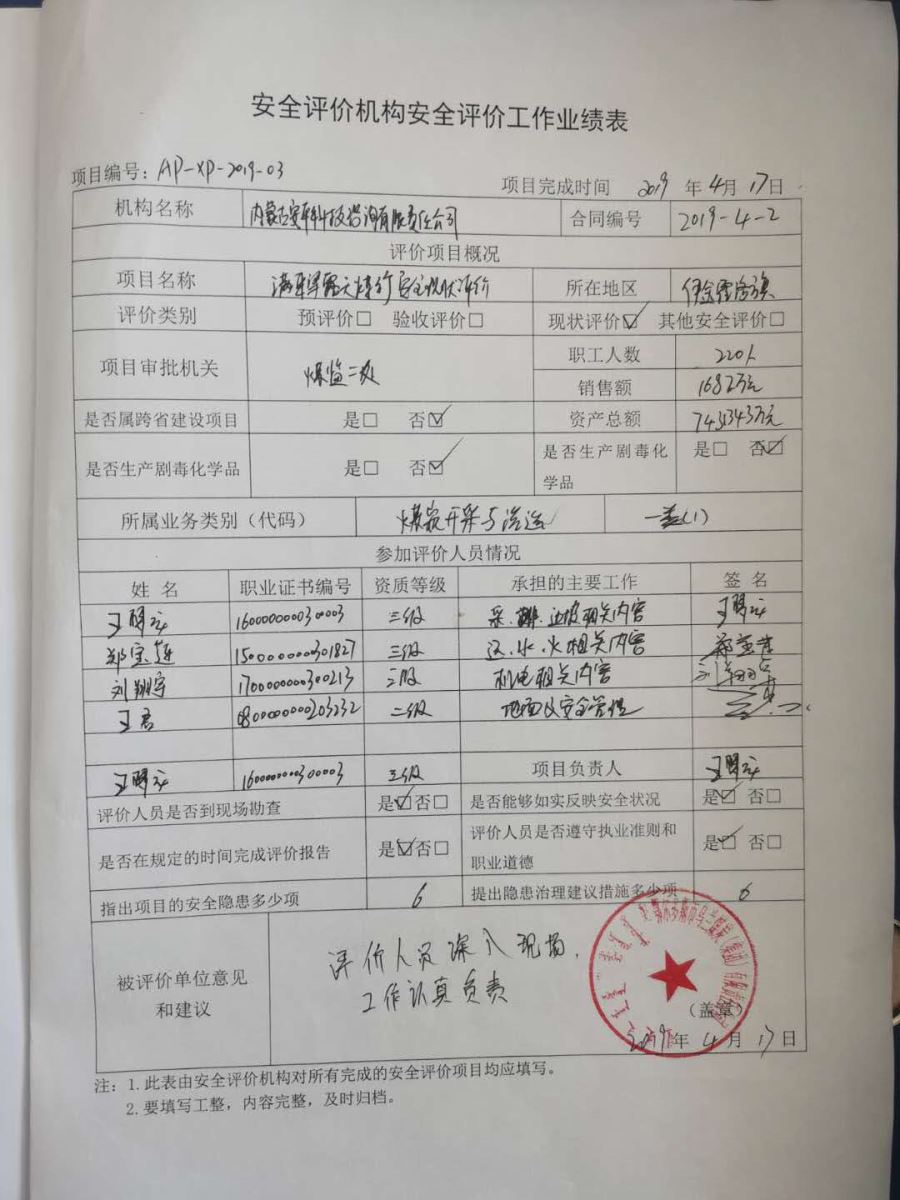 安全评价机构安全评价工作业绩表
项目编号：AP-XP-2019-03
项目完成时间 2019 年 4月 17日
机构名称 内蒙古安科技咨询有限责任公司 合同编号 2019-4-2
评价项目概况
项目名称 满来梁露天煤矿安全现状评价 所在地区 伊金霍洛旗
评价类别 预评价□ 验收评价□ 现状评价☑ 其他安全评价□
项目审批机关 煤监二处 职工人数 220人
销售额 1682万元
是否属跨省建设项目 是□ 否☑ 资产总额 万元
是否生产剧毒化学品 是□ 否☑ 是否生产剧毒化学品 是□ 否☑
所属业务类别（代码） 煤炭开采与洗选 一类(1)
参加评价人员情况
姓 名 职业证书编号 资质等级 承担的主要工作 签 名
160000000030003 三级 采、排、边坡相关内容
郑宝 1500000000301827 三级 运、水、火相关内容 郑宝
刘翔宇 1700000000300213 三级 机电相关内容 刘翔宇
王君 0800000000203232 二级 地面及安全管理 王君
三级 项目负责人
评价人员是否到现场勘查 是☑否□ 是否能够如实反映安全状况 是☑ 否□
是否在规定的时间完成评价报告 是☑否□ 评价人员是否遵守执业准则和职业道德 是☑ 否□
指出项目的安全隐患多少项 6 提出隐患治理建议措施多少项 6
被评价单位意见
和建议
评价人员深入现场，
工作认真负责
（盖章）
2019年 4 月 17 日
注：1.此表由安全评价机构对所有完成的安全评价项目均应填写。
2.要填写工整，内容完整，及时归档。